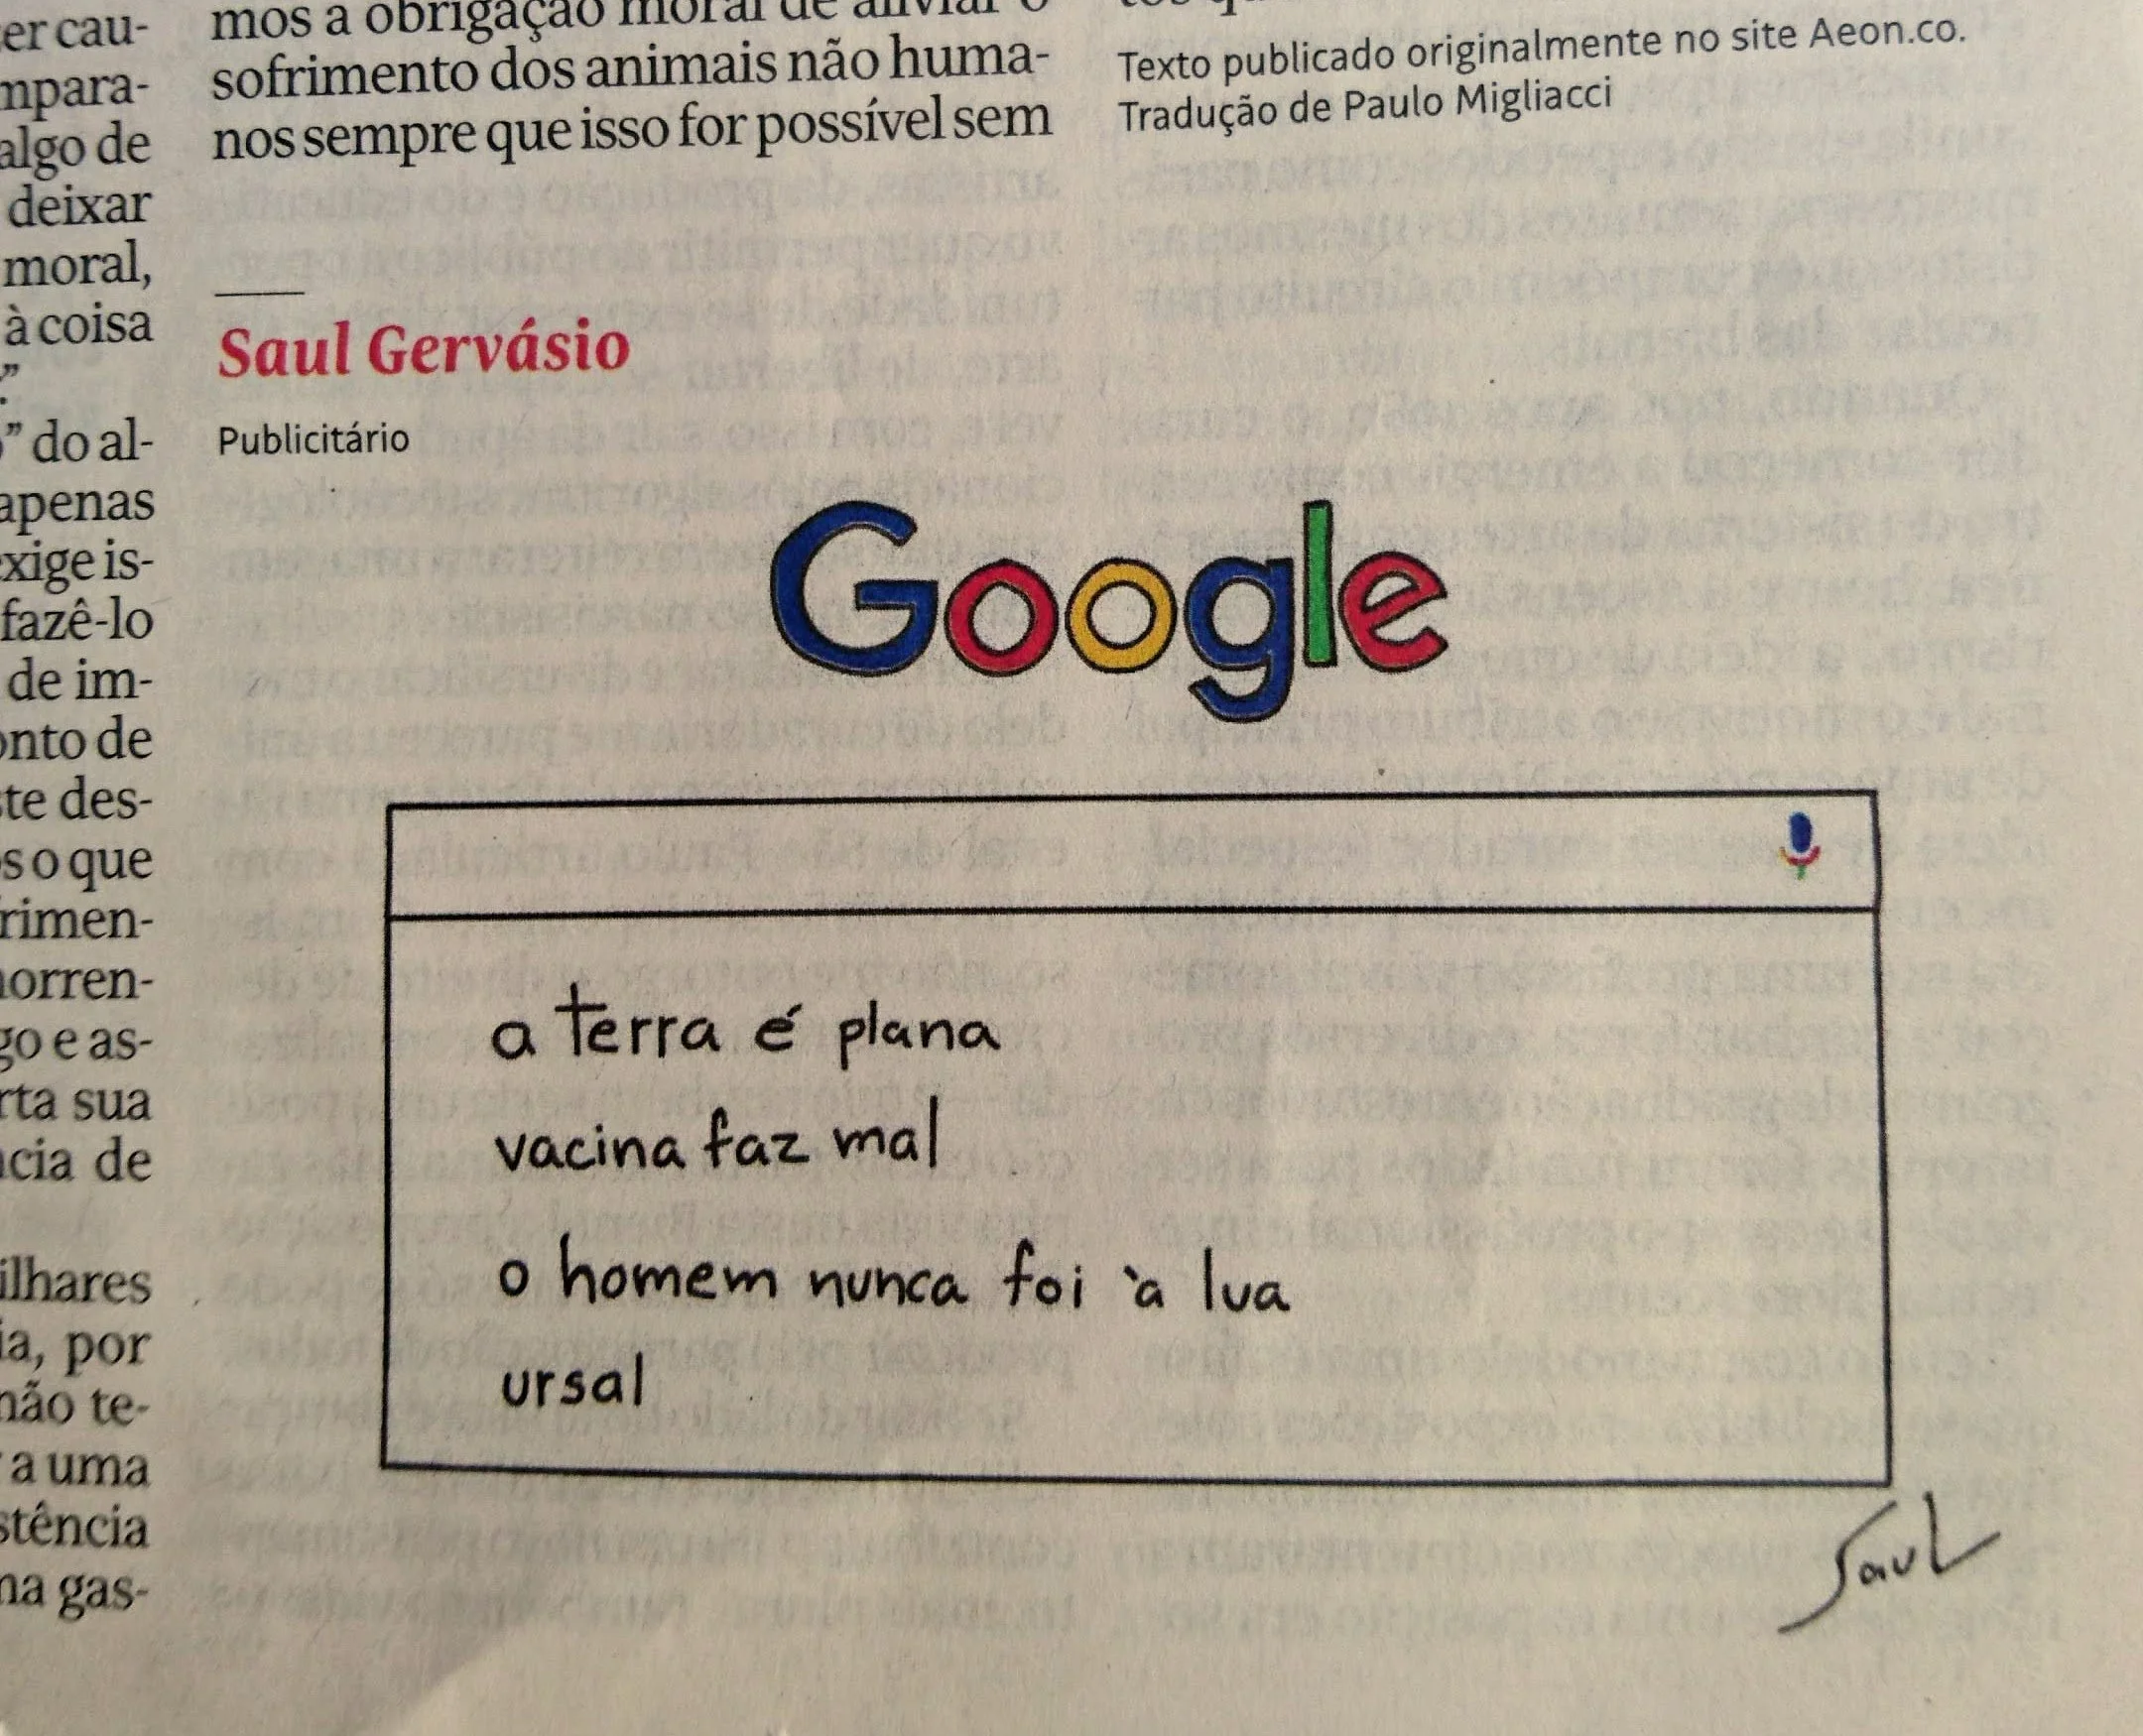 er cau-
mpara-
algo de
deixar
moral,
à coisa
.”
” do al-
apenas
exige is-
fazê-lo
de im-
onto de
ste des-
os o que
frimen-
go e as-
rta sua
ncia de
ilhares
ia, por
não te-
a uma
stência
ma gas-
mos a obrigação moral de aliviar o
sofrimento dos animais não huma-
nos sempre que isso for possível sem
Texto publicado originalmente no site Aeon.co.
Tradução de Paulo Migliacci
Saul Gervásio
Publicitário
Google
a terra é plana
vacina faz mal
o homem nunca foi à lua
ursal
Saul